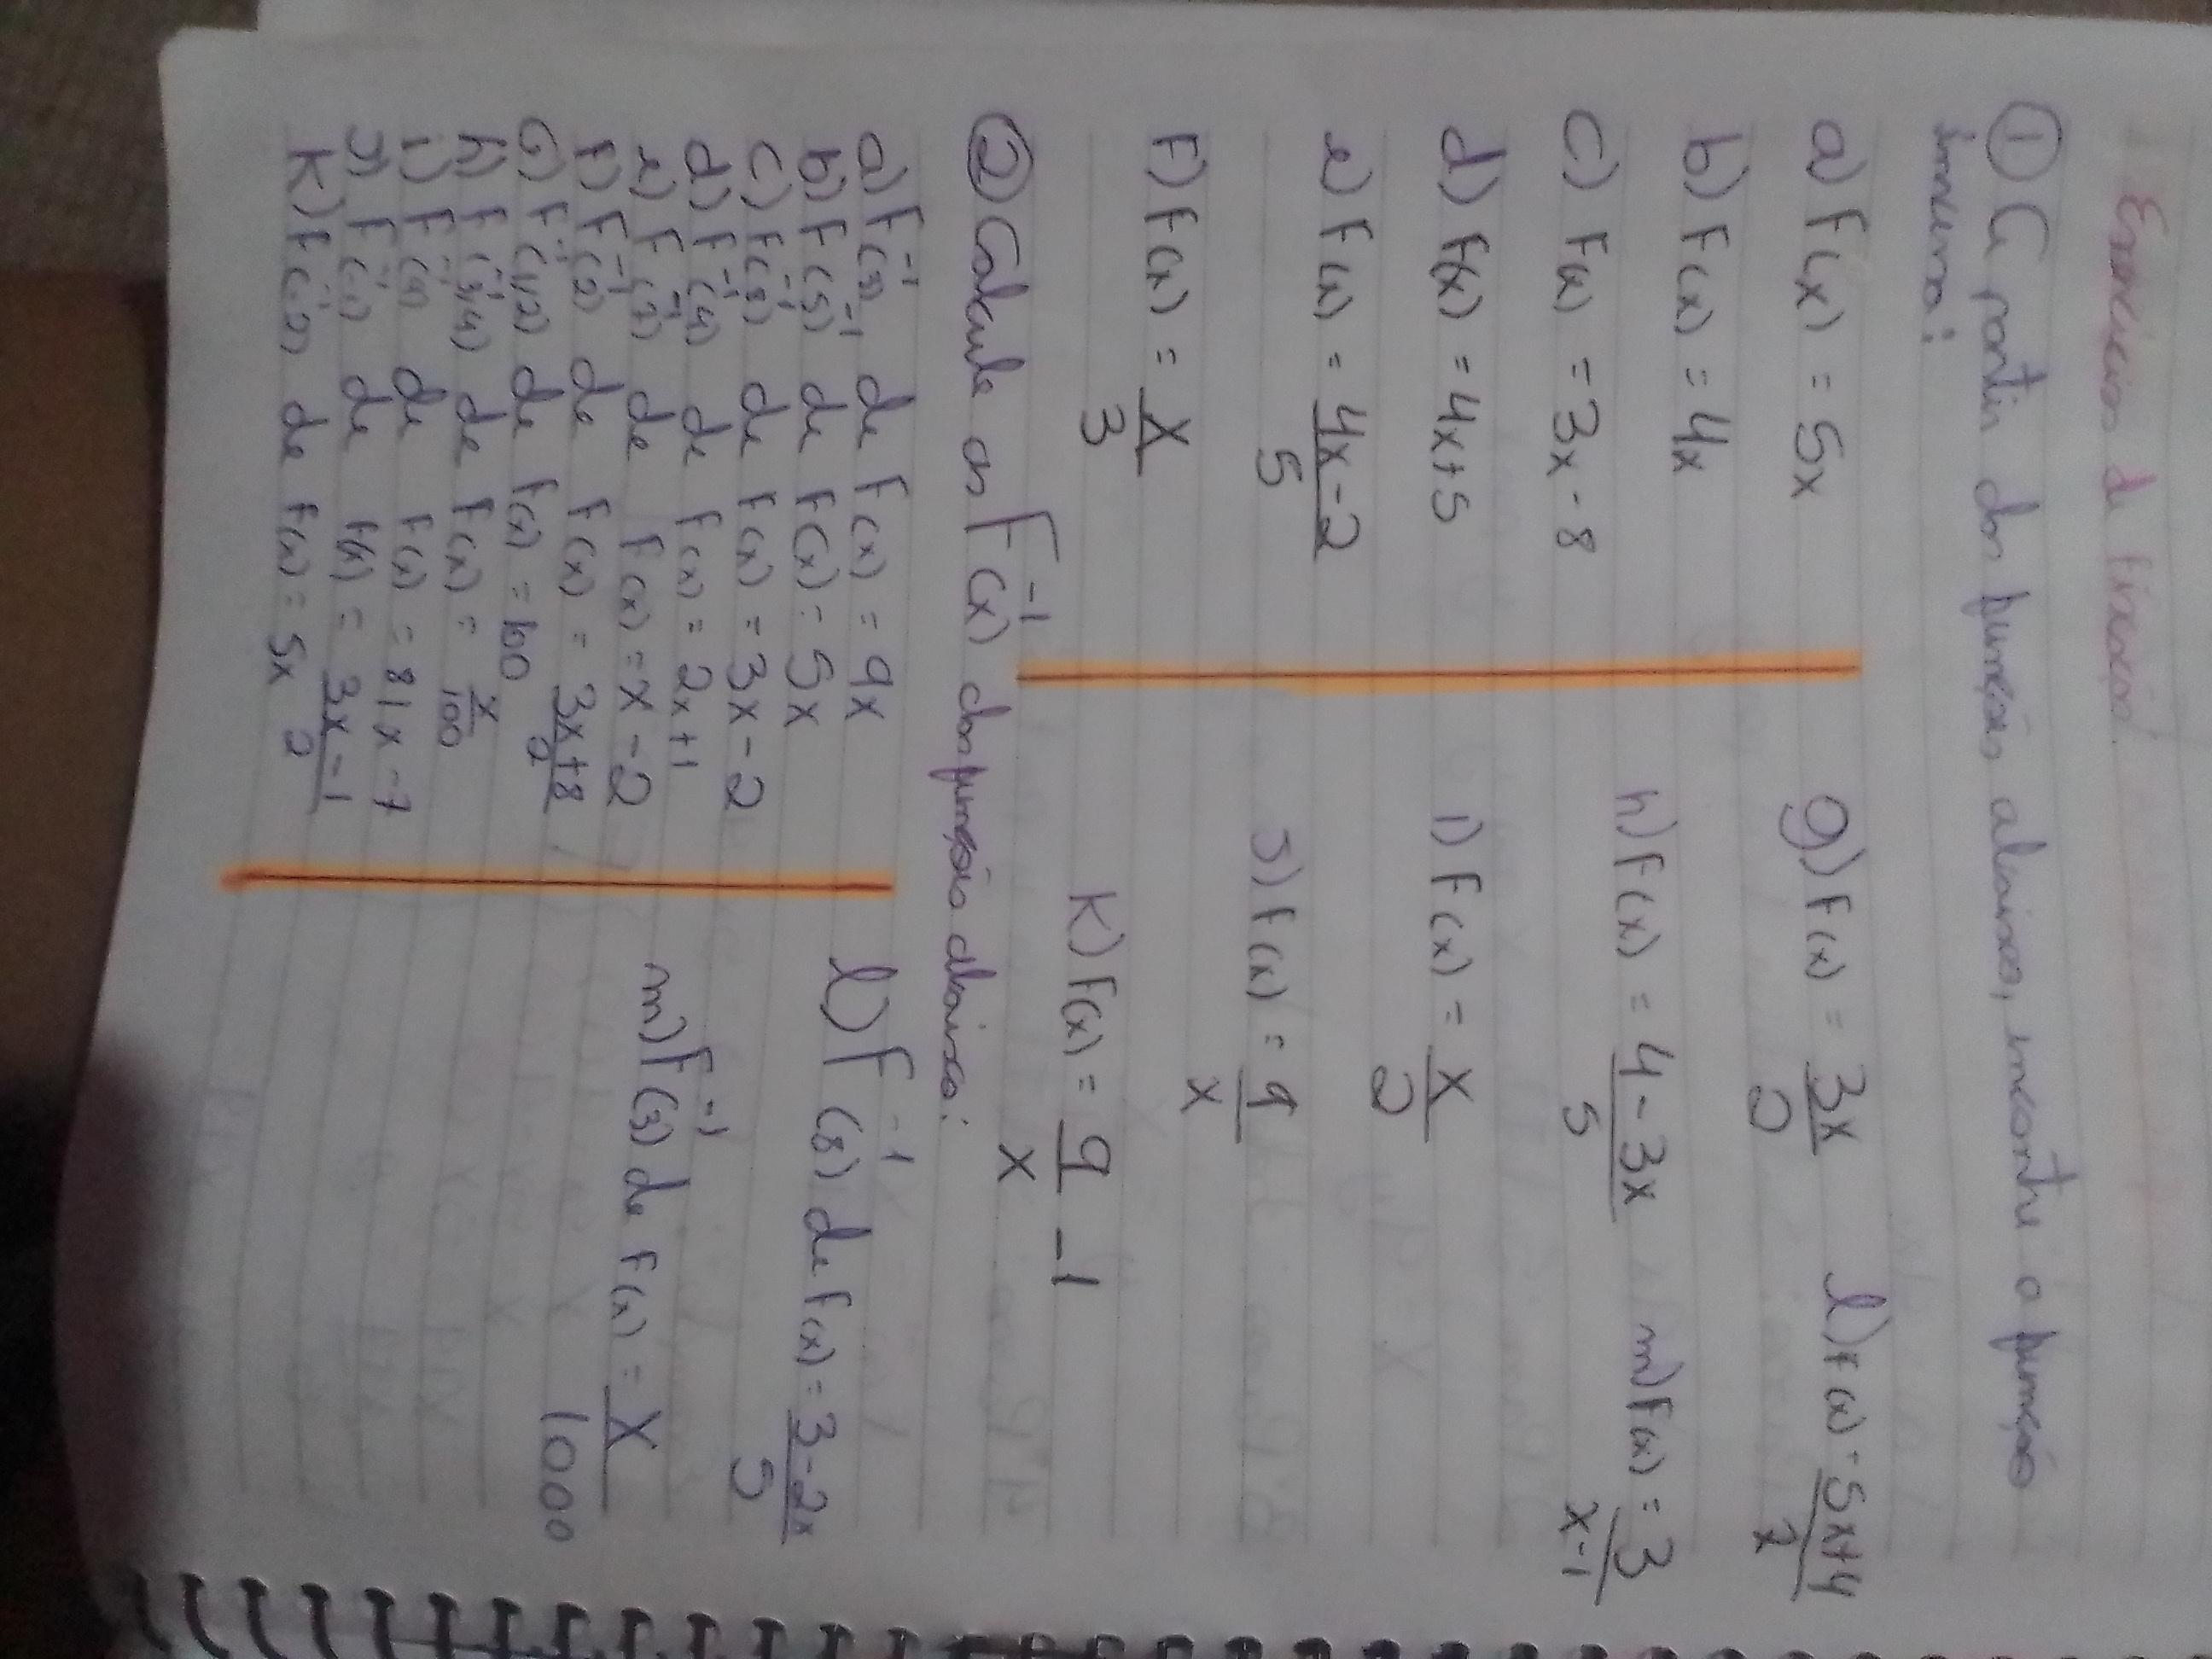 Exercícios de fixação!
① A partir das funções abaixo, encontre a função
inversa:
a) F(x) = 5x
b) F(x) = 4x
c) F(x) = 3x - 8
d) F(x) = 4x + 5
e) F(x) = 4x - 2 / 5
F) F(x) = x / 3
g) F(x) = 3x / 2
h) F(x) = 4 - 3x / 5
i) F(x) = x / 2
J) F(x) = 9 / x
K) F(x) = 9 / x - 1
l) F(x) = 5x + 4 /
m) F(x) = 3 / x - 1
② Calcule as F⁻¹(x) das função abaixo:
a) F⁻¹ de F(x) = 9x
b) F⁻¹(5) de F(x) = 5x
c) F⁻¹(8) de F(x) = 3x - 2
d) F⁻¹(4) de F(x) = 2x + 1
e) F⁻¹(7) de F(x) = x - 2
F) F⁻¹(2) de F(x) = 3x + 8 / 2
G) F⁻¹(1/2) de F(x) = 100
h) F⁻¹(3/4) de F(x) = x / 100
i) F⁻¹ de F(x) = 81x - 7
J) F⁻¹ de F(x) = 3x - 1 / 2
K) F⁻¹(-2) de F(x) = 5x
l) F⁻¹(8) de F(x) = 3 - 2x / 5
m) F⁻¹(3) de F(x) = x / 1000